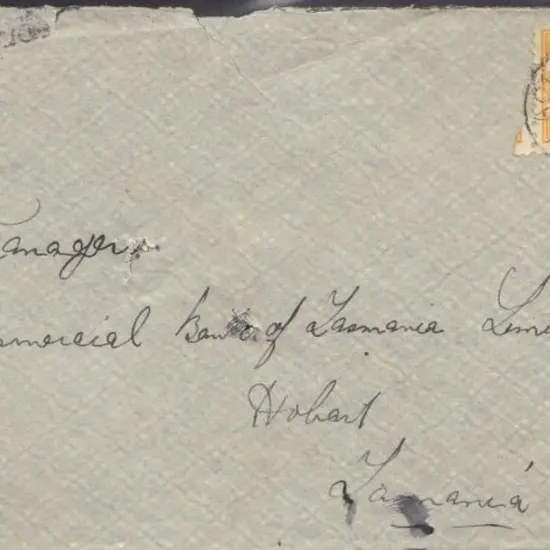 anager
mmercial Bank of Tasmania Limi
Hobart
Tasmania